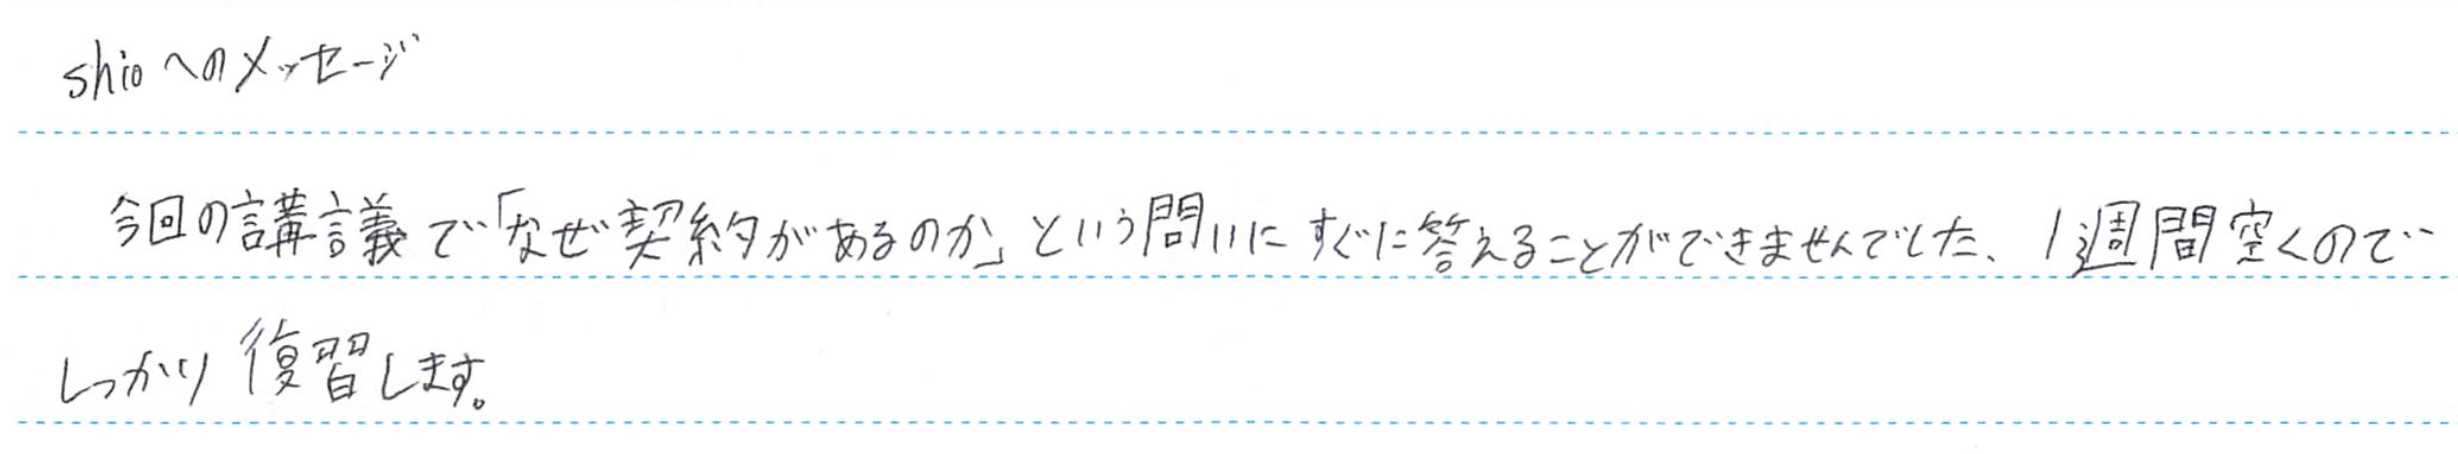 shioへのメッセージ
今回の講議で「なぜ契約があるのか」という問いにすぐに答えることができませんでした、1週間空くので
しっかり復習します。